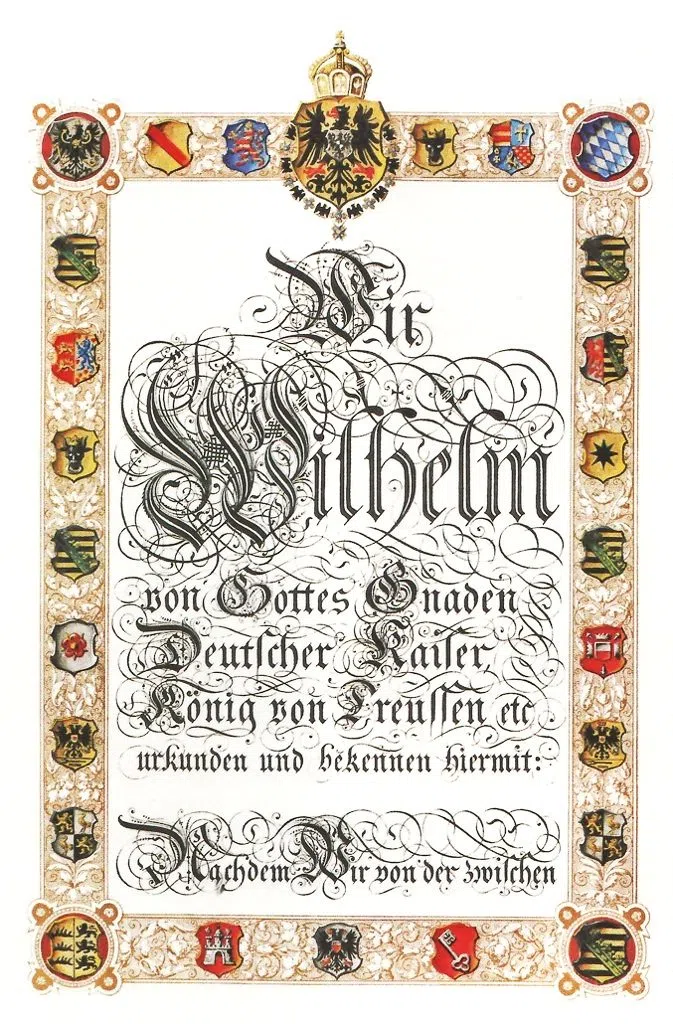 Wir
Wilhelm
von Gottes Gnaden
Deutscher Kaiser,
König von Preussen etc
urkunden und bekennen hiermit:
Nachdem Wir von der zwischen